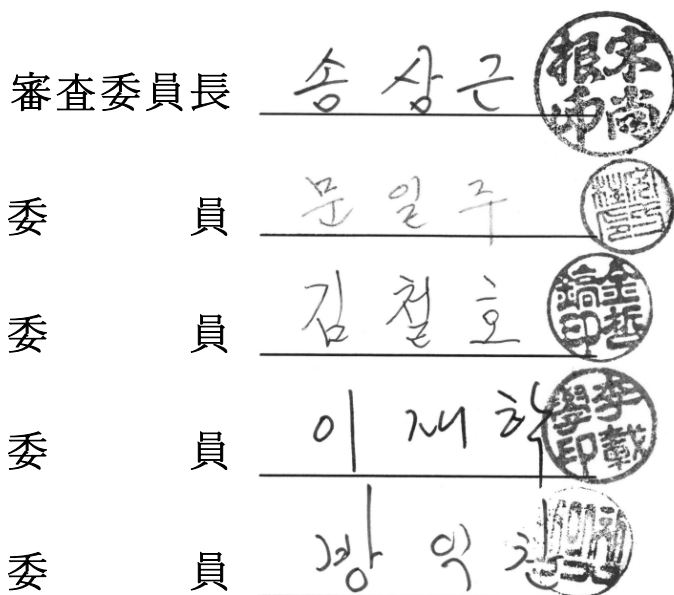 審査委員長 송상근 宋尚根印
委員 문일주
委員 김철호 金哲鎬印
委員 이재학 李載學印
委員 익